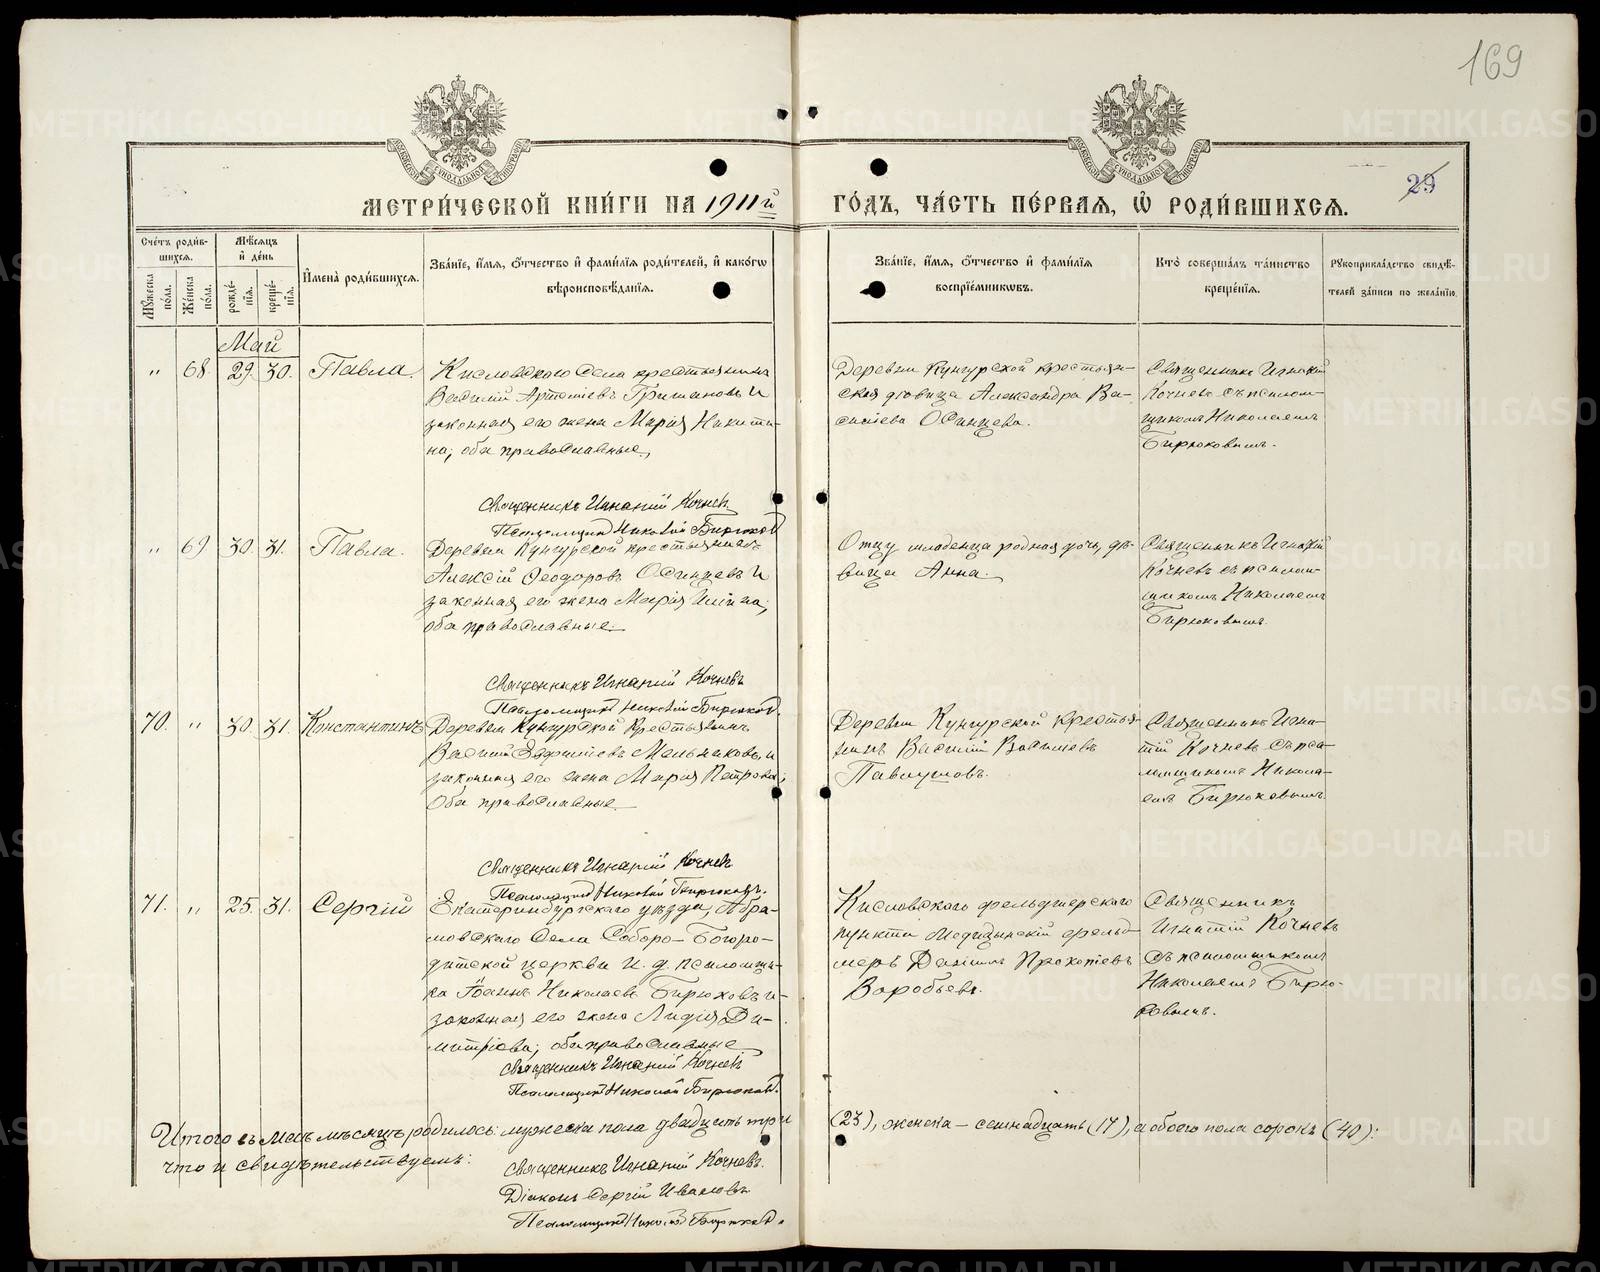 169
29
МЕТРИ́ЧЕСКОЙ КНИ́ГИ НА 1911й ГО́ДЪ, ЧА́СТЬ ПЕ́РВАЯ, Ѡ҆ РОДИ́ВШИХСЯ.
Сче́тъ роди́в-
шихся.
Мꙋ́жеска по́ла.
Же́нска по́ла.
Мѣ́сяцъ
и҆ де́нь
рожде́-
нїѧ.
креще́-
нїѧ.
И҆мена̀ роди́вшихся.
Зва́нїе, и҆́мя, ѻ҆́тчество и҆ фами́лїя роди́телей, и҆ како́гѡ
вѣроисповѣ́данїя.
Зва́нїе, и҆́мя, ѻ҆́тчество и҆ фами́лїя
воспрїе́мникѡвъ.
Кто̀ соверша́лъ та́инство
креще́нїя.
Рꙋкоприкла́дство свидѣ́-
телей за́писи по жела́нїю.
Май
„ 68. 29. 30. Павла.
Кисловскаго Села крестьянинъ
Василій Артеміевъ Гришановъ и
законная его жена Марія Никити-
на; оба православные.
Деревни Кунгурской крестьян-
ская девица Александра Ва-
сильева Осинцева.
Священникъ Игнатій
Кочневъ съ псалом-
щикомъ Николаемъ
Бирюковымъ.
Священникъ Игнатій Кочневъ
Псаломщикъ Николай Бирюковъ
„ 69 30. 31. Павла.
Деревни Кунгурской крестьянинъ
Алексій Феодоровъ Осинцевъ и
законная его жена Марія Ильина;
оба православные.
Отцу младенца родная дочь, дѣ-
вица Анна.
Священникъ Игнатій
Кочневъ съ псалом-
щикомъ Николаемъ
Бирюковымъ.
Священникъ Игнатій Кочневъ
Псаломщикъ Николай Бирюковъ.
70. „ 30. 31. Константинъ
Деревни Кунгурской Крестьянинъ
Василій Мельчаковъ, и
законная его жена Марія Петрова;
Оба православные.
Деревни Кунгурской Крестья-
нинъ Василій Васильевъ
Священникъ Игна-
тій Кочневъ съ пса-
ломщикомъ Никола-
емъ Бирюковымъ.
Священникъ Игнатій Кочневъ
Псаломщикъ Николай Бирюковъ.
71. „ 25. 31. Сергій
Екатеринбургскаго уѣзда, Абра-
мовскаго Села Соборо-Богоро-
дитской церкви и. д. псаломщи-
ка Іоаннъ Николаевъ Бирюковъ и
законная его жена Лидія Ди-
митріева; оба православные
Кисловского фельдшерского
пункта Медицынскій фельд-
шеръ Даніилъ Прокопіевъ
Воробьевъ.
Священникъ
Игнатій Кочневъ
съ псаломщикомъ
Николаемъ Бирю-
ковымъ.
Священникъ Игнатій Кочневъ
Псаломщикъ Николай Бирюковъ.
Итого въ Маѣ мѣсяцѣ родилось: мужеска пола двадцать три (23), женска – семнадцать (17), а обоего пола сорокъ (40):
что и свидѣтельствуемъ:
Священникъ Игнатій Кочневъ.
Діаконъ Сергій Ивановъ
Псаломщикъ Николай Бирюковъ.
METRIKI.GASO-URAL.RU